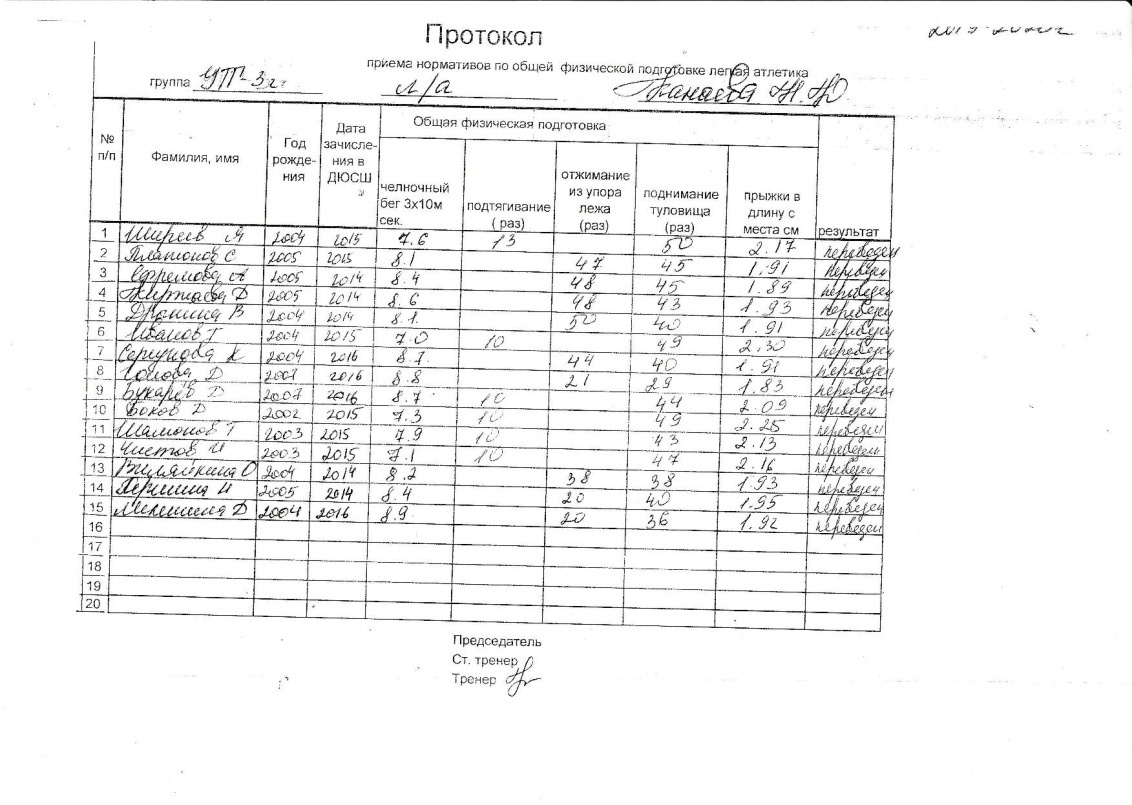 2019-2020г
Протокол
приема нормативов по общей физической подготовке легкая атлетика
группа УТ-3г л/а Канаева Н.Ю
№ п/п Фамилия, имя Год рожде-ния Дата зачисле-ния в ДЮСШ Общая физическая подготовка результат
челночный бег 3х10м сек. подтягивание (раз) отжимание из упора лежа (раз) поднимание туловища (раз) прыжки в длину с места см
1 Ширеев Я 2004 2015 7.6 13 50 2.17 переведен
2 Платонов С 2005 2015 8.1 47 45 1.91 переведен
3 Ефремова А 2005 2014 8.4 48 45 1.89 переведен
4 Д 2005 2014 8.6 48 43 1.93 переведен
5 Дронина В 2004 2014 8.1. 50 40 1.91 переведен
6 Иванов Т 2004 2015 7.0 10 49 2.30 переведен
7 К 2004 2016 8.7 44 40 1.91 переведен
8 Д 2016 8.8 21 29 1.83 переведен
9 Букарев D 2016 8.7 10 44 2.09 переведен
10 Боков D 2002 2015 7.3 10 49 2.25 переведен
11 Шамонов Т 2003 2015 7.9 10 43 2.13 переведен
12 Чистов И 2003 2015 7.1 10 47 2.16 переведен
13 О 2004 2014 8.2 38 38 1.93 переведен
14 И 2005 2014 8.4 20 40 1.95 переведен
15 Д 2004 2016 8.9 20 36 1.92 переведен
16
17
18
19
20
Председатель
Ст. тренер
Тренер